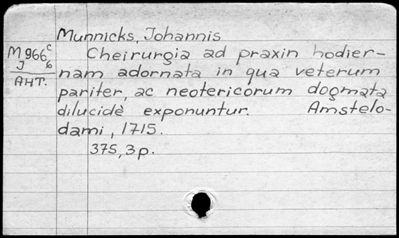 Munnicks, Johannis
M966c Cheirurgia ad praxin hodier-
J6 nam adornata in qua veterum
AHT. pariter, ac neotericorum dogmata
dilucidè exponuntur. Amstelo-
dami, 1715.
375, 3p.